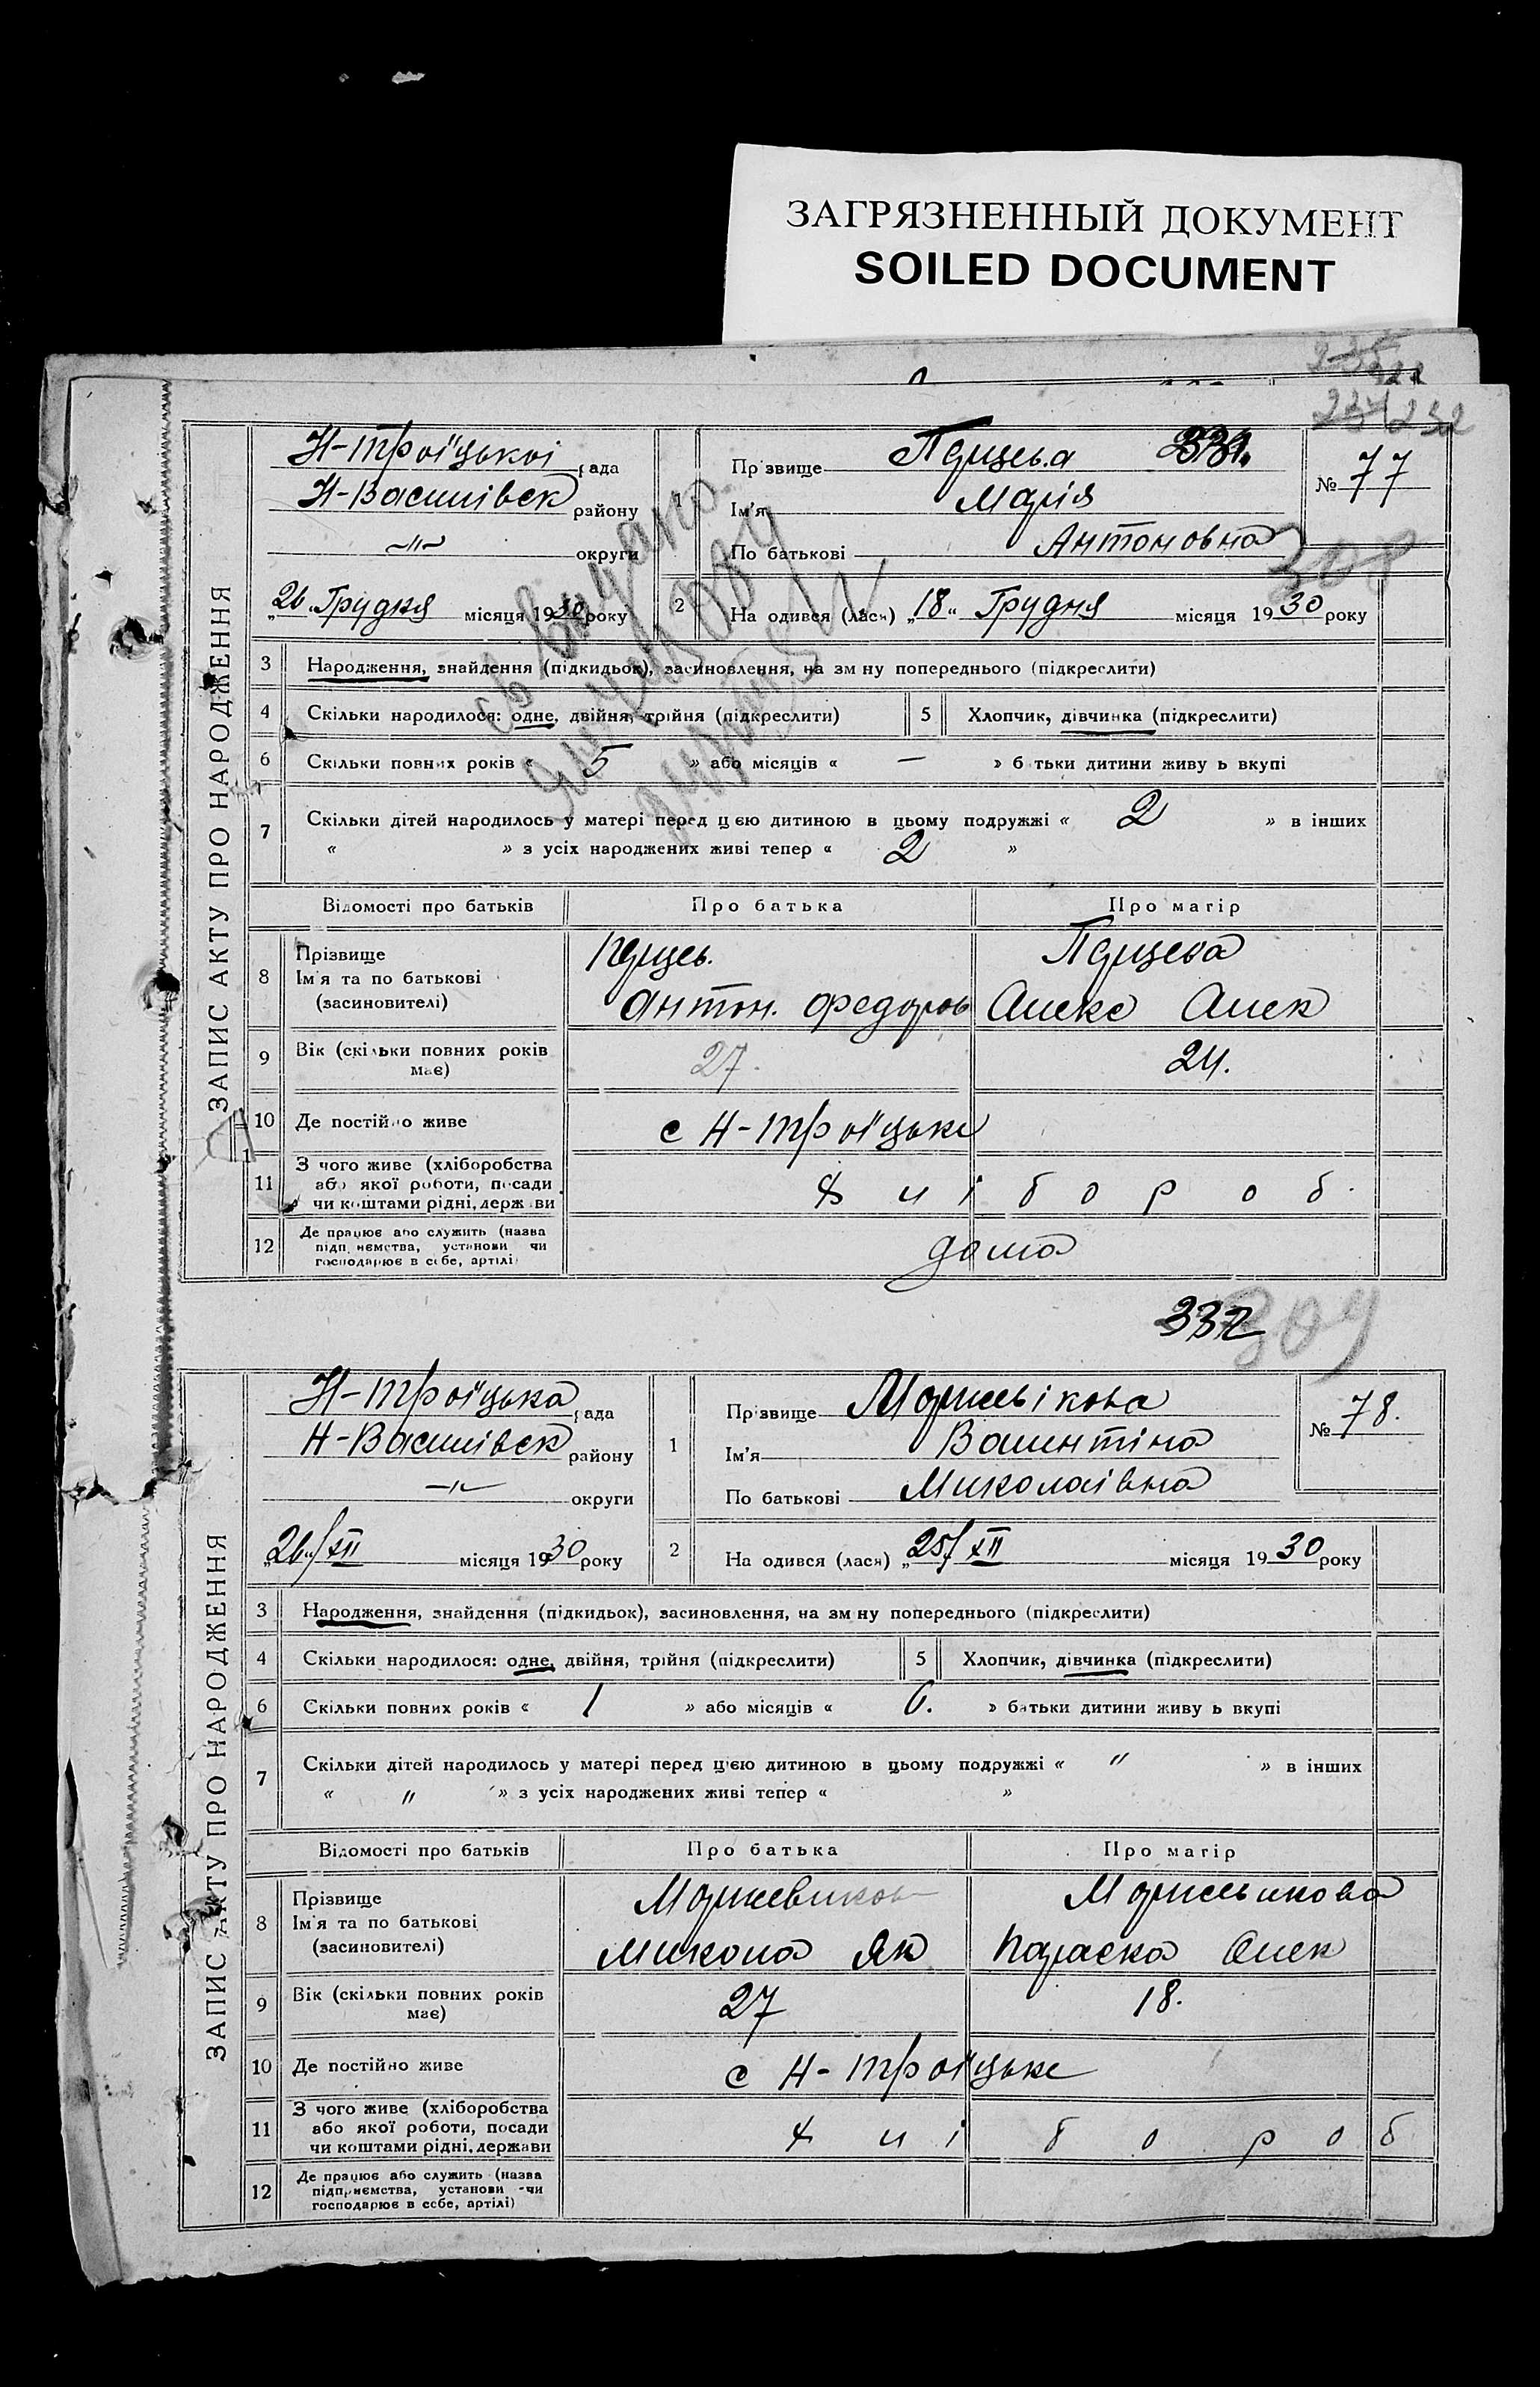 ЗАГРЯЗНЕННЫЙ ДОКУМЕНТ
SOILED DOCUMENT
232
ЗАПИС АКТУ ПРО НАРОДЖЕННЯ
Н-Троїцькоі рада
Н-Василівск району
—"— округи
„26„ Грудня місяця 1930 року
331.
Прізвище
Ім'я Марія
По батькові Антоновна
№ 77
308
2 На одився (лася) „18„ Грудня місяця 1930 року
3 Народження, знайдення (підкидьок), засиновлення, на зм ну попереднього (підкреслити)
4 Скільки народилося: одне, двійня, трійня (підкреслити)
5 Хлопчик, дівчинка (підкреслити)
6 Скільки повних років « 5 » або місяців « — » б тьки дитини живу ь вкупі
7 Скільки дітей народилось у матері перед цією дитиною в цьому подружжі « 2 » в інших
« » з усіх народжених живі тепер « 2 »
Відомості про батьків Про батька Про матір
8 Прізвище
Ім'я та по батькові Антон. Федоров Олекс Олек
(засиновителі)
9 Вік (скільки повних років має) 27. 24.
10 Де постійно живе с Н-Троїцьке
11 З чого живе (хліборобства
або якої роботи, посади Хлібороб.
чи коштами рідні, держ ви
12 Де працює або служить (назва
підп иємства, установи чи дома
господарює в себе, артілі)
332
309
ЗАПИС АКТУ ПРО НАРОДЖЕННЯ
Н-Троїцька рада
Н-Василівск району
—"— округи
„26„/XII місяця 1930 року
1 Прізвище
Ім'я Валентіна
По батькові Миколаівна
№ 78.
2 На одився (лася) „25/XII місяця 1930 року
3 Народження, знайдення (підкидьок), засиновлення, на зм ну попереднього (підкреслити)
4 Скільки народилося: одне, двійня, трійня (підкреслити)
5 Хлопчик, дівчинка (підкреслити)
6 Скільки повних років « 1 » або місяців « 6. » батьки дитини живу ь вкупі
7 Скільки дітей народилось у матері перед цією дитиною в цьому подружжі « " » в інших
« " » з усіх народжених живі тепер « »
Відомості про батьків Про батька Про матір
8 Прізвище
Ім'я та по батькові Микола Як Параска Олек
(засиновителі)
9 Вік (скільки повних років має) 27 18.
10 Де постійно живе с Н-Троїцьке
11 З чого живе (хліборобства
або якої роботи, посади Хлібороб
чи коштами рідні, держави
12 Де працює або служить (назва
підприємства, установи чи
господарює в себе, артілі)